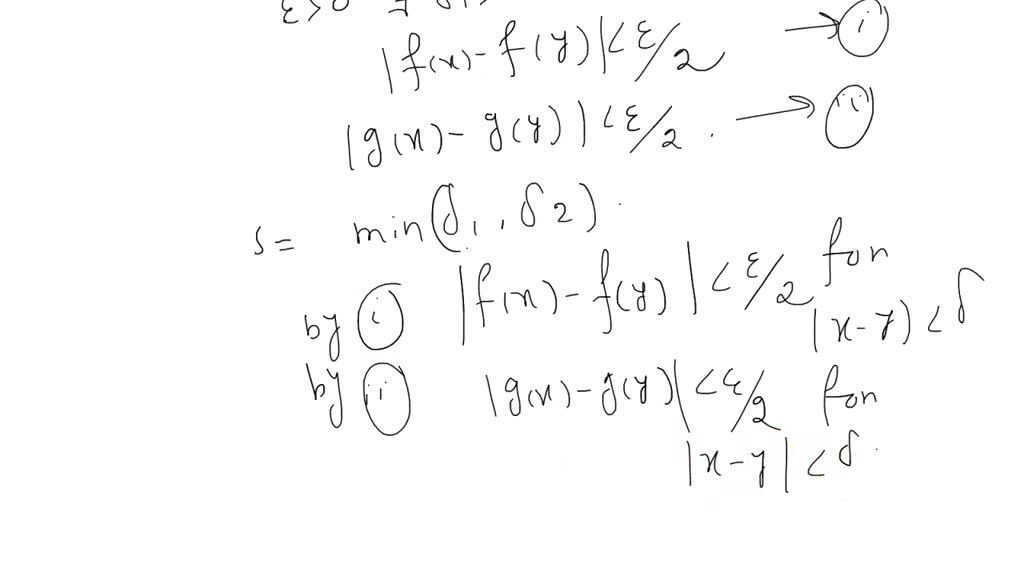 ε>0 ∃
|f(x)-f(y)|<ε/2 → (i)
|g(x)-g(y)|<ε/2. → (ii)
δ= min(δ1, δ2).
by (i) |f(x)-f(y)|<ε/2 for
|x-y)<δ
by (ii) |g(x)-g(y)|<ε/2 for
|x-y|<δ.